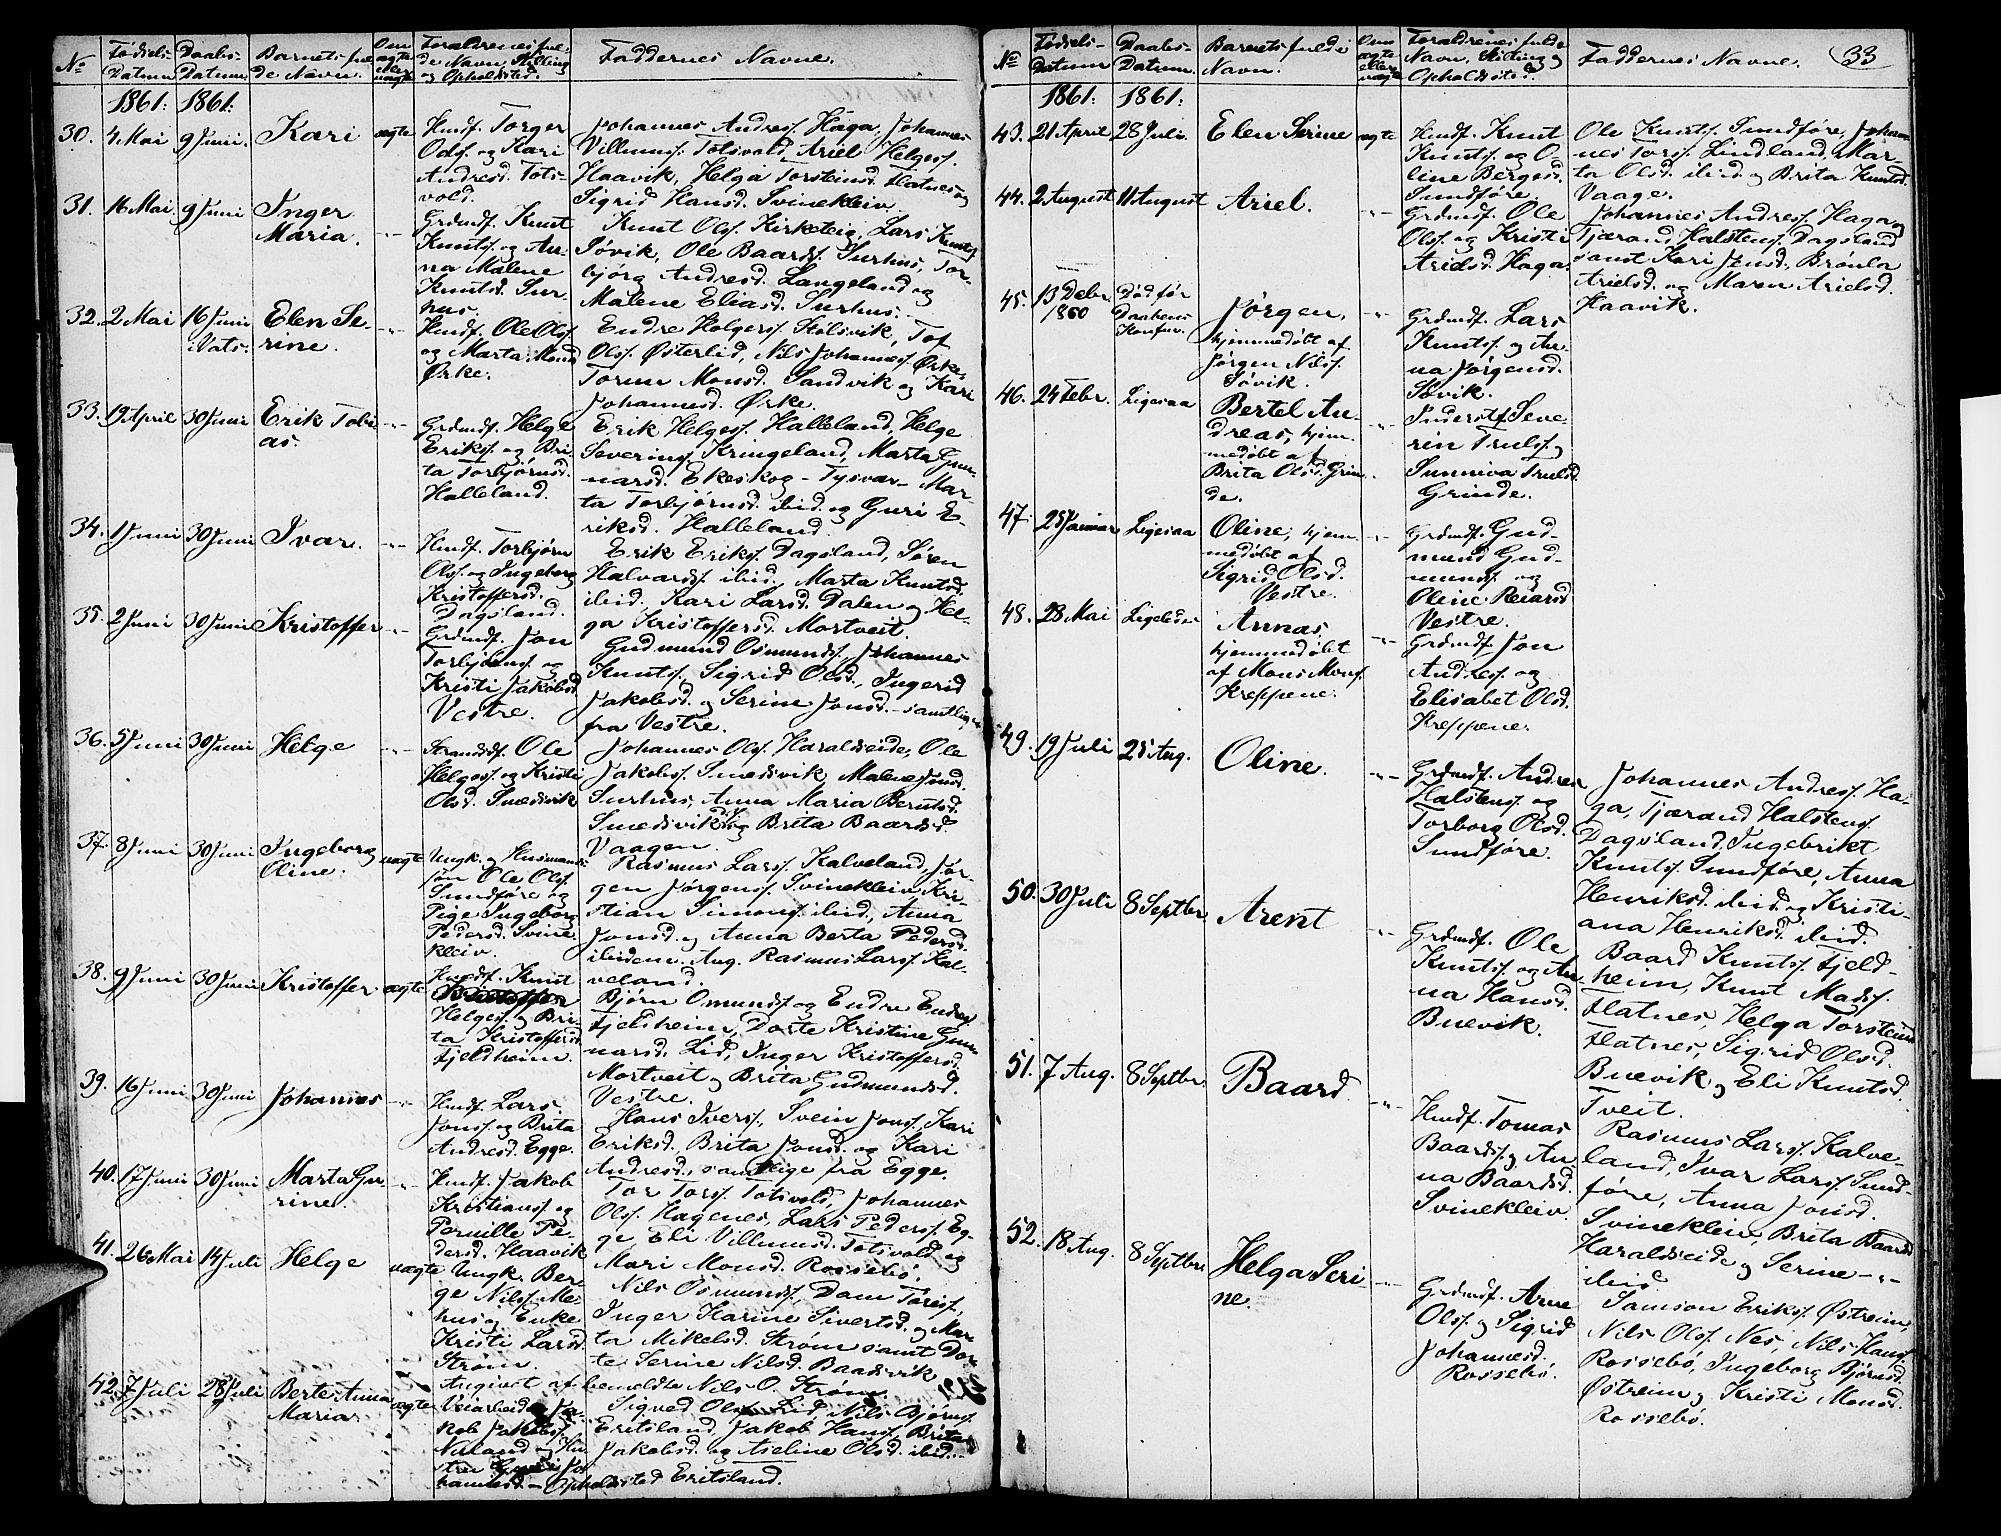 No
Fødsels-
Datum
Daabs-
Datum
Barnets ful-
de Navn.
Om
ægte
eller
uægte
Forældrenes ful-
de Navn, Stilling
og Opholdsted.
Faddernes Navne.
1861: 1861:
30. 4 Mai 9 Juni. Kari ægte
Husmf. Torger
Odss. og Kari
Andresd. Tots-
vold.
Johannes Andress. Haga, Johannes
Villumss. Totsvold, Ariel Helgess.
Haavik, Helga Torsteinsd. Flatnes og
Sigrid Hansd. Svinekleiv.
31. 16 Mai 9 Juni Inger
Maria. -"-
Grdmdf. Knut
Knuts. og An-
na Malene
Knutsd. Sur-
hus.
Knut Olss. Kirketeig, Lars Knuts.
Søvik, Ole Baards. Surhus, Tor-
bjørg Andresd. Langeland og
Malene Eliasd. Surhus.
32. 2 Mai 16 Juni
Vats. Elen Se-
rine. -"-
Husmf. Ole Olss.
og Marta Monsd.
Ørke.
Endre Helgess. Stølsvik, Tof
Olss. Østerlid, Nils Johanness. Ørke,
Torine Monsd. Sandvik og Kari
Johannesd. Ørke.
33. 19 April 30 Juni Erik Tobi-
as. -"-
Grdmdf. Helge
Erikss. og Bri-
ta Torbjørnsd.
Halleland.
Erik Helgess. Halleland, Helge
Severins. Kringeland, Marta Gun-
narsd. Ekeskog - Tysvær - Mar-
ta Torbjørnsd. ibid. og Guri E-
riksd. Halleland.
34. 1 Juni 30 Juni Ivar. -"-
Husmf. Torbjørn
Olss. og Ingeborg
Kristoffersd.
Dagsland.
Erik Eriks. Dagsland, Søren
Halvards. ibid., Marta Knutsd.
ibid., Kari Larsd. Dalen og Hel-
ga Kristoffersd. Mortveit.
35. 2 Juni 30 Juni Kristoffer -"-
Grdmdf. Jon
Torbjørns. og
Kristi Jakobsd.
Vestre.
Gudmund Osmunds., Johannes
Knuts., Sigrid Olsd., Ingerid
Jakobsd. og Serine Jonsd. - samtlige
fra Vestre.
36. 5 Juni 30 Juni Helge -"-
Strandsdf. Ole
Helgess. og Kristi
Olsd. Smedsvik
Johannes Olss. Haraldseide, Ole
Jakobss. Smedsvik, Malene Jonsd.
Surhus, Anna Maria Berntsd.
Smedsvik og Brita Baardsd.
Vaagen.
37. 8 Juni 30 Juni Ingeborg
Oline. uægte
Ungk. og Husmands-
søn Ole Olss.
Sundføre og
Pige Ingeborg
Pedersd. Svine-
kleiv.
Rasmus Larss. Kalveland, Jør-
gen Jørgenss. Svinekleiv, Kri-
stian Simons. ibid., Anna
Jonsd. og Anna Berta Pedersd.
ibidem. Ang. Rasmus Larss. Kal-
veland.
38. 9 Juni 30 Juni Kristoffer ægte
Husmf. Knut
Helgess. og Bri-
ta Kristoffersd.
Fjeldheim.
Bjørn Omunds. og Endre Endress.
Fjeldsheim, Dorte Kristine Gun-
narsd. Lid, Inger Kristoffersd.
Mortveit og Brita Gudmundsd.
Vestre.
39. 16 Juni 30 Juni Johannes -"-
Husmf. Lars
Jonss. og Brita
Andresd. Egge.
Hans Iverss., Svein Jonss., Kari
Eriksd. Brita Jonsd. og Kari
Andresd., samtlige fra Egge.
40. 17 Juni 30 Juni Marta Gu-
rine. -"-
Husmf. Jakob
Kristians. og
Pernille Pe-
dersd. Haavik
Tor Torss. Totsvold, Johannes
Olss. Hagenes, Lars Pederss. Eg-
ge, Eli Villumsd. Totsvold, og
Mari Monsd. Rossebø.
41. 26 Mai 14 Juli Helge uægte
Ungk. Ber-
ge Nilss. Me-
hus og Enke
Kristi Larsd.
Strøm.
Nils Osmunds. Dam, Toress,
Inger Karine Sivertsd. og Mar-
ta Mikelsd. Strøm samt Dor-
te Serine Nilsd. Baadsvik
Angivet af bemeldte Nils O. Strøm.
42. 7 Juli 28 Juli Berte Anna
Maria. ægte
Veiarbeider Ja-
kob Jakobs.
Nuland og Hu-
stru Guri Jo-
hannesd. - Opholdssted Eritsland.
Sigved Olss. Lid, Nils Bjørns.
Eritsland, Jakob Hanss., Brita
Jakobsd. og Aseline Olsd. ibid.
No
Fødsels-
Datum
Daabs-
Datum.
Barnets fulde
Navn.
Om
ægte
eller
uægte
Forældrenes fulde
Navn, Stilling og
Opholdssted.
Faddernes Navne.
33
1861: 1861:
43. 21 April 28 Juli. Elen Serine ægte
Husmf. Knut
Knuts. og O-
line Bergesd.
Sundføre.
Ole Knuts. Sundføre, Johan-
nes Torss. Lindland, Mar-
ta Olsd. ibid. og Brita Knutsd.
Vaage.
44. 2 August 11 August Ariel. -"-
Grdmdf. Ole
Olss. og Kristi
Arielsd. Haga.
Johannes Andress. Haga og
Tjærand Halstens. Dagsland
samt Kari Jonsd., Brønla
Arielsd. og Maren Arielsd.
Haavik.
45. 13 Debr.
1860 Død før
Daabens
Konfir. Jørgen,
hjemmedøbt af
Jørgen Nilss.
Søvik. -"-
Grdmdf. Lars
Knuts. og An-
na Jørgensd.
Søvik.
46. 24 Febr. Ligesaa Bertel An-
dreas, hjem-
medøbt af
Brita Olsd. Grin-
de. -"-
Inderstf. Seve-
rin Trulss. og
Sunniva Trulsd.
Grinde.
47. 25 Januar Ligesaa Oline, hjem-
medøbt af
Sigrid Olsd.
Vestre. -"-
Grdmdf. Gud-
mund Gud-
munds. og
Oline Reiarsd.
Vestre.
48. 28 Mai Ligeledes Annas
hjemmedøbt
af Mons Monss.
Kreppene. -"-
Grdmdf. Jon
Andress. og
Elisabet Olsd.
Kreppene.
49. 19 Juli 25 Aug. Oline. -"-
Grdmdf. Andreas
Halstens. og
Torborg Olsd.
Sundføre.
Johannes Andress. Ha-
ga, Tjærand Halstens.
Dagsland, Ingebrikt
Knuts. Sundføre, Anna
Henriksd. ibid. og Kristi-
ana Henriksd. ibid.
50. 30 Juli 8 Septbr. Arent -"-
Grdmdf. Ole
Knuts. og An-
na Hansd.
Buevik.
Baard Knuts. Fjeld-
heim, Knut Madss.
Flatnes, Helga Torsteinsd.
Flatnes, Sigrid Olsd.
Buevik og Eli Knutsd.
Tveit.
51. 7 Aug. 8 Septbr. Baard -"-
Husmf. Tomas
Baards. og An-
na Baardsd.
Svinekleiv.
Rasmus Larss. Kalve-
land, Ivar Larss. Sund-
føre, Anna Jonsd.
Svinekleiv, Brita Baardsd.
Haraldseide og Serine -"-
ibid.
52. 18 Aug. 8 Septbr. Helga Seri-
ne. -"-
Grdmdf. Arne
Olss. og Sigrid
Johannesd.
Rossebø.
Samson Erikss. Østreim,
Nils Olss. Nes, Nils Hanss.
Rossebø, Ingeborg Bjørnsd.
Østreim og Kristi Monsd.
Rossebø.